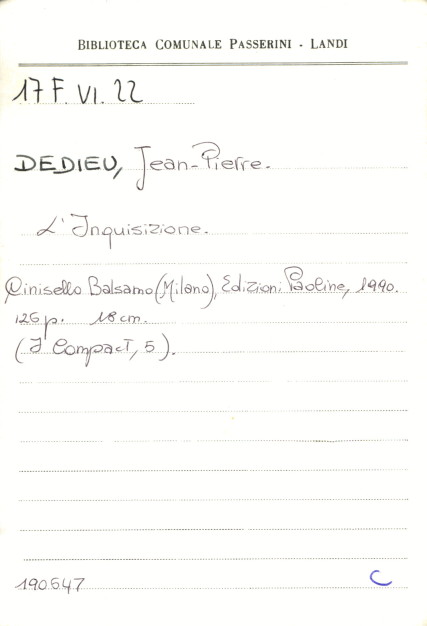 BIBLIOTECA COMUNALE PASSERINI - LANDI
17 F. VI. 22
DEDIEU, Jean-Pierre.
L'Inquisizione.
Cinisello Balsamo (Milano), Edizioni Paoline, 1990.
126 p. 18 cm.
(I Compact, 5).
190547
C